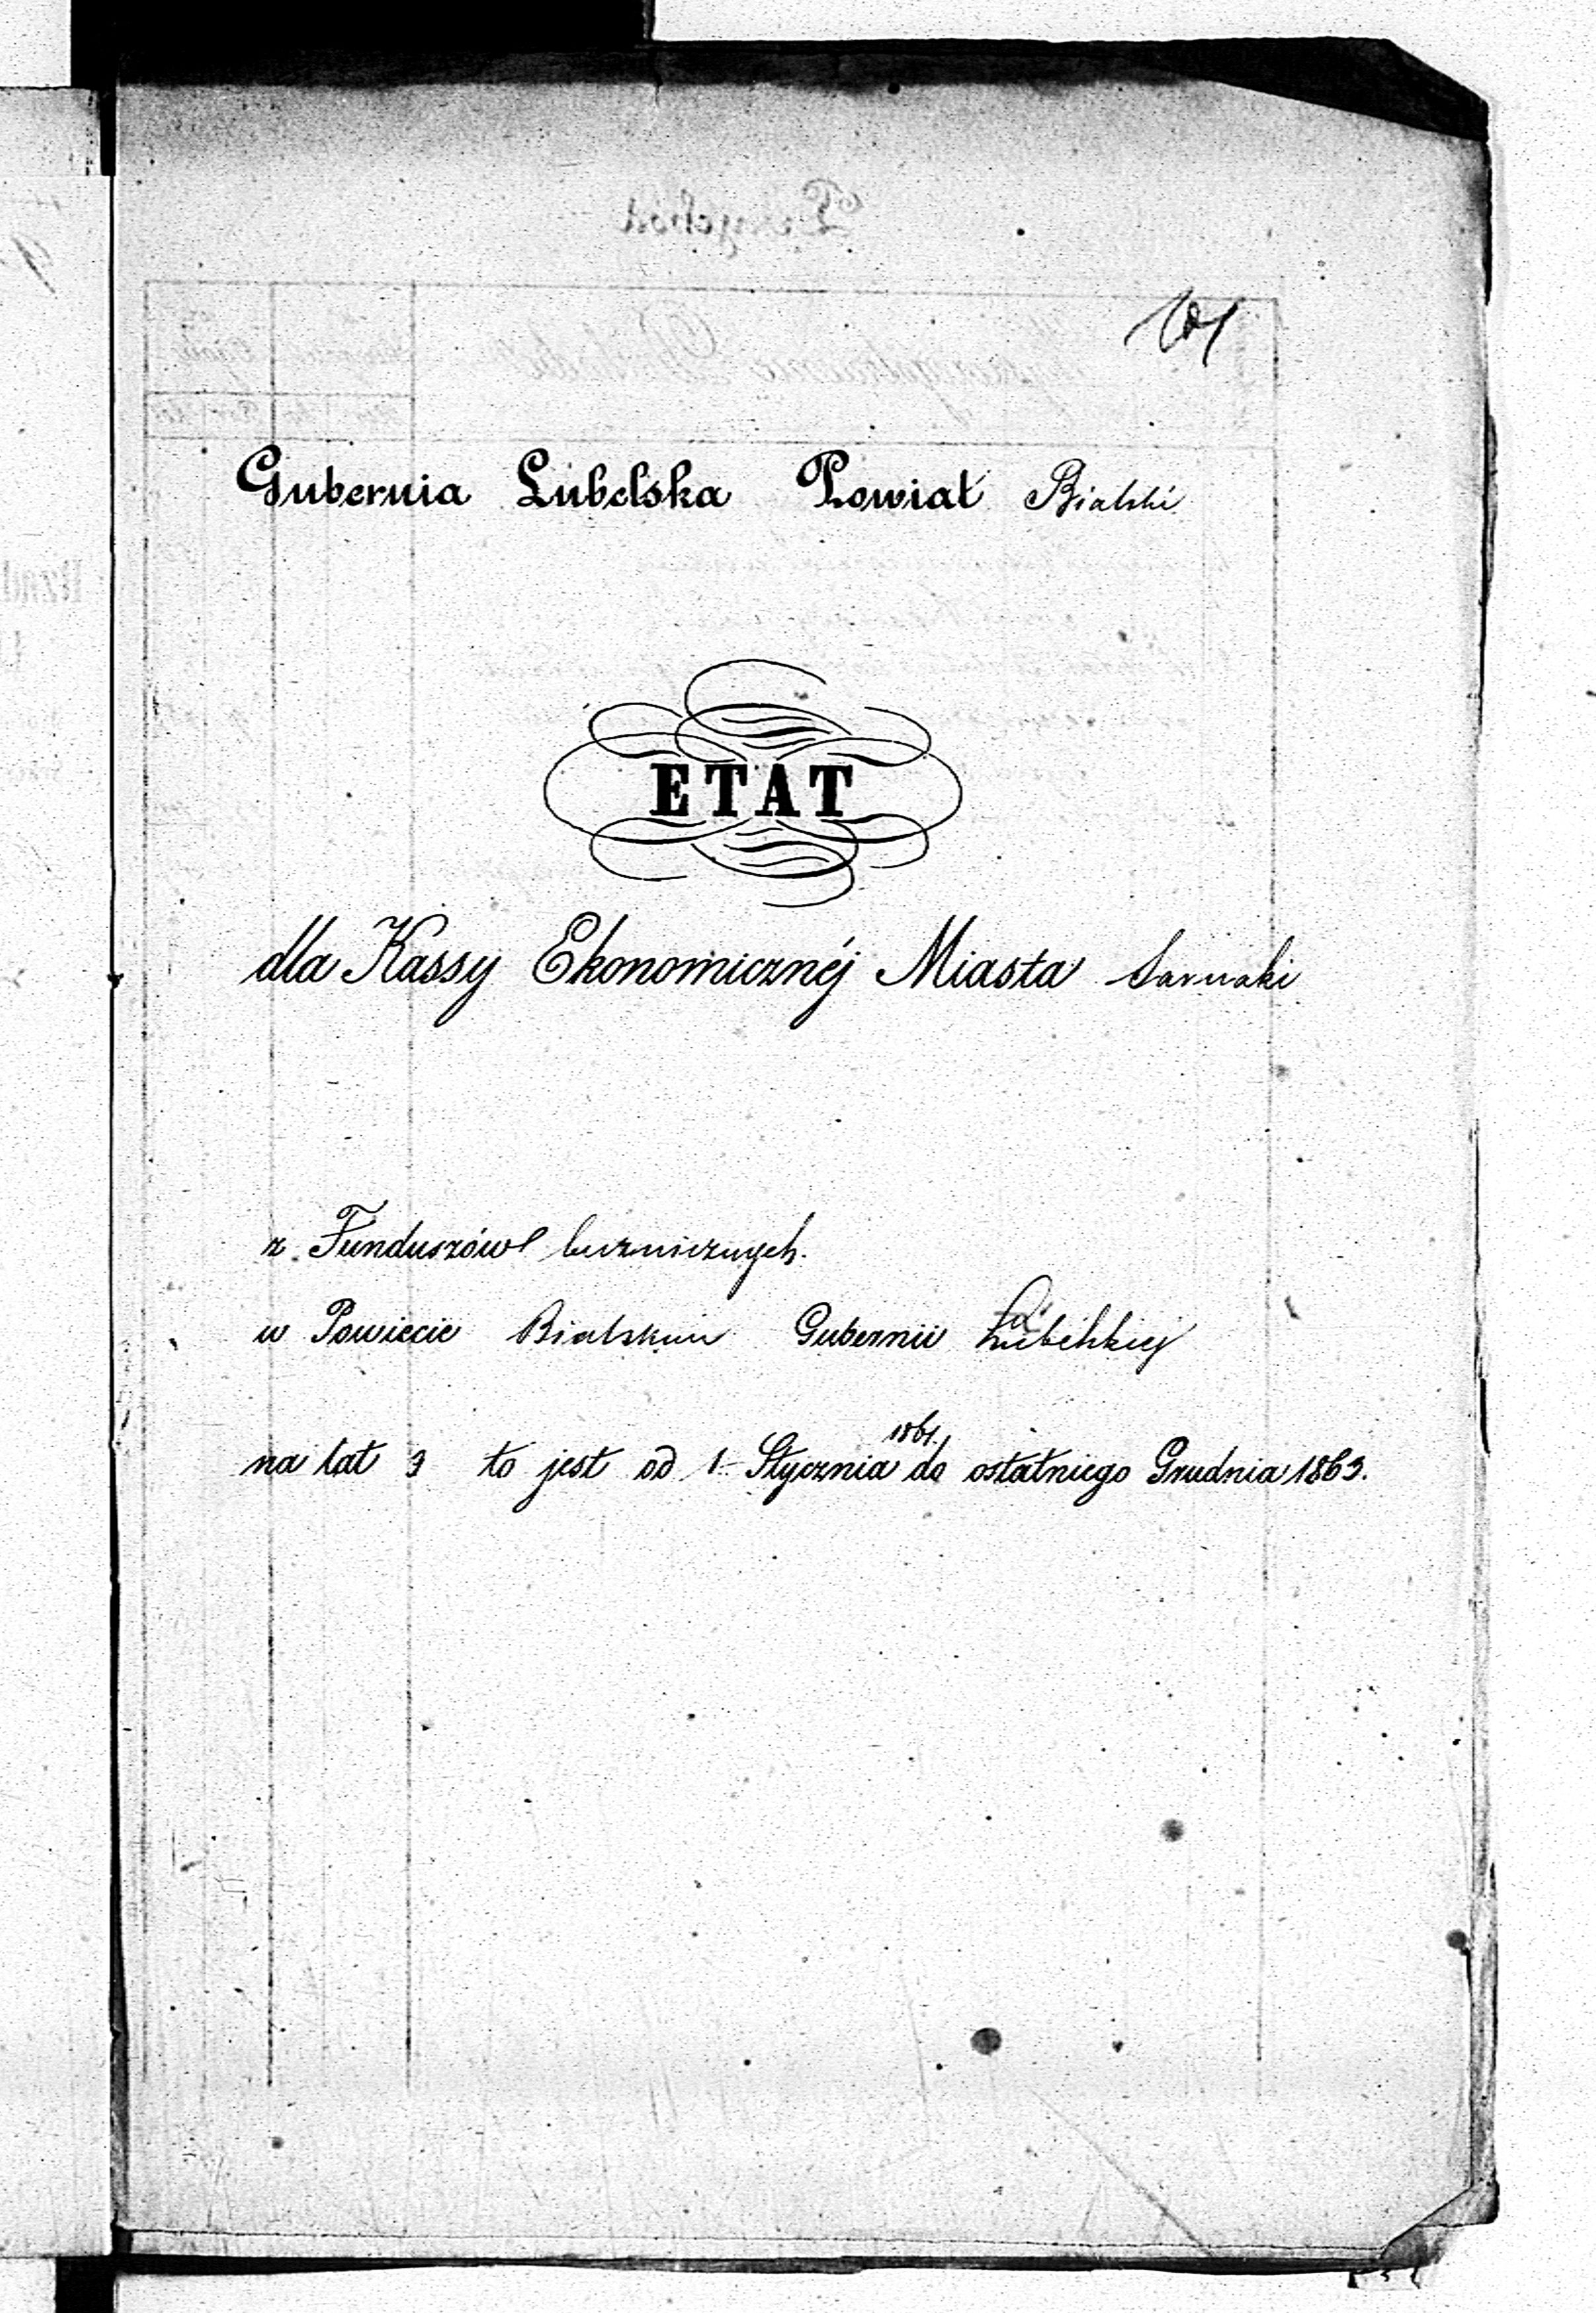 101
Gubernia Lubelska Powiat Bialski
ETAT
dla Kassy Ekonomicznéj Miasta Sarnaki
z Funduszów bużnicznych.
w Powiecie Bialskim Gubernii Lubelskiej
1861.
na lat 3 to jest od 1 Stycznia do ostatniego Grudnia 1863.